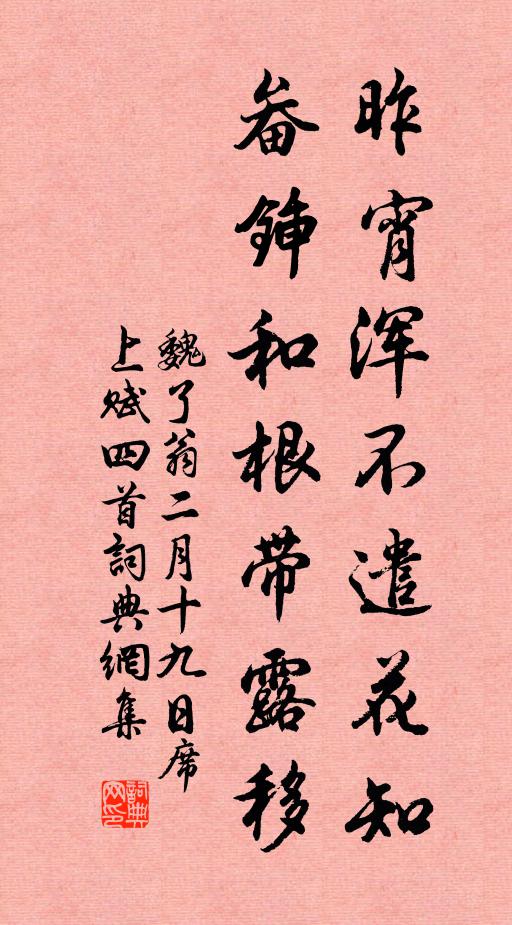 昨宵浑不遣花知
畚锸和根带露移
魏了翁二月十九日席
上赋四首詞典網集
詞典网印